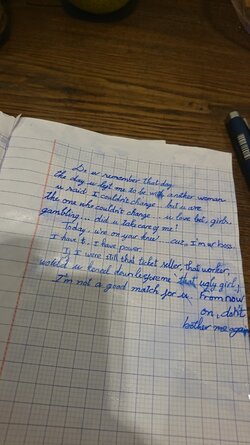 Do u remember that day
the day u left me to be with another woman
u said I couldn't change but u are
the one who couldn't change... u love bet, girls,
gambling... did u take care of me!
Today, u're on your knee!... cut, I'm ur boss
I have it, I have power.
If I were still that ticket seller, that worker,
would u kneel down before me that ugly girl,
I'm not a good match for u. From now
on, don't
bother me again